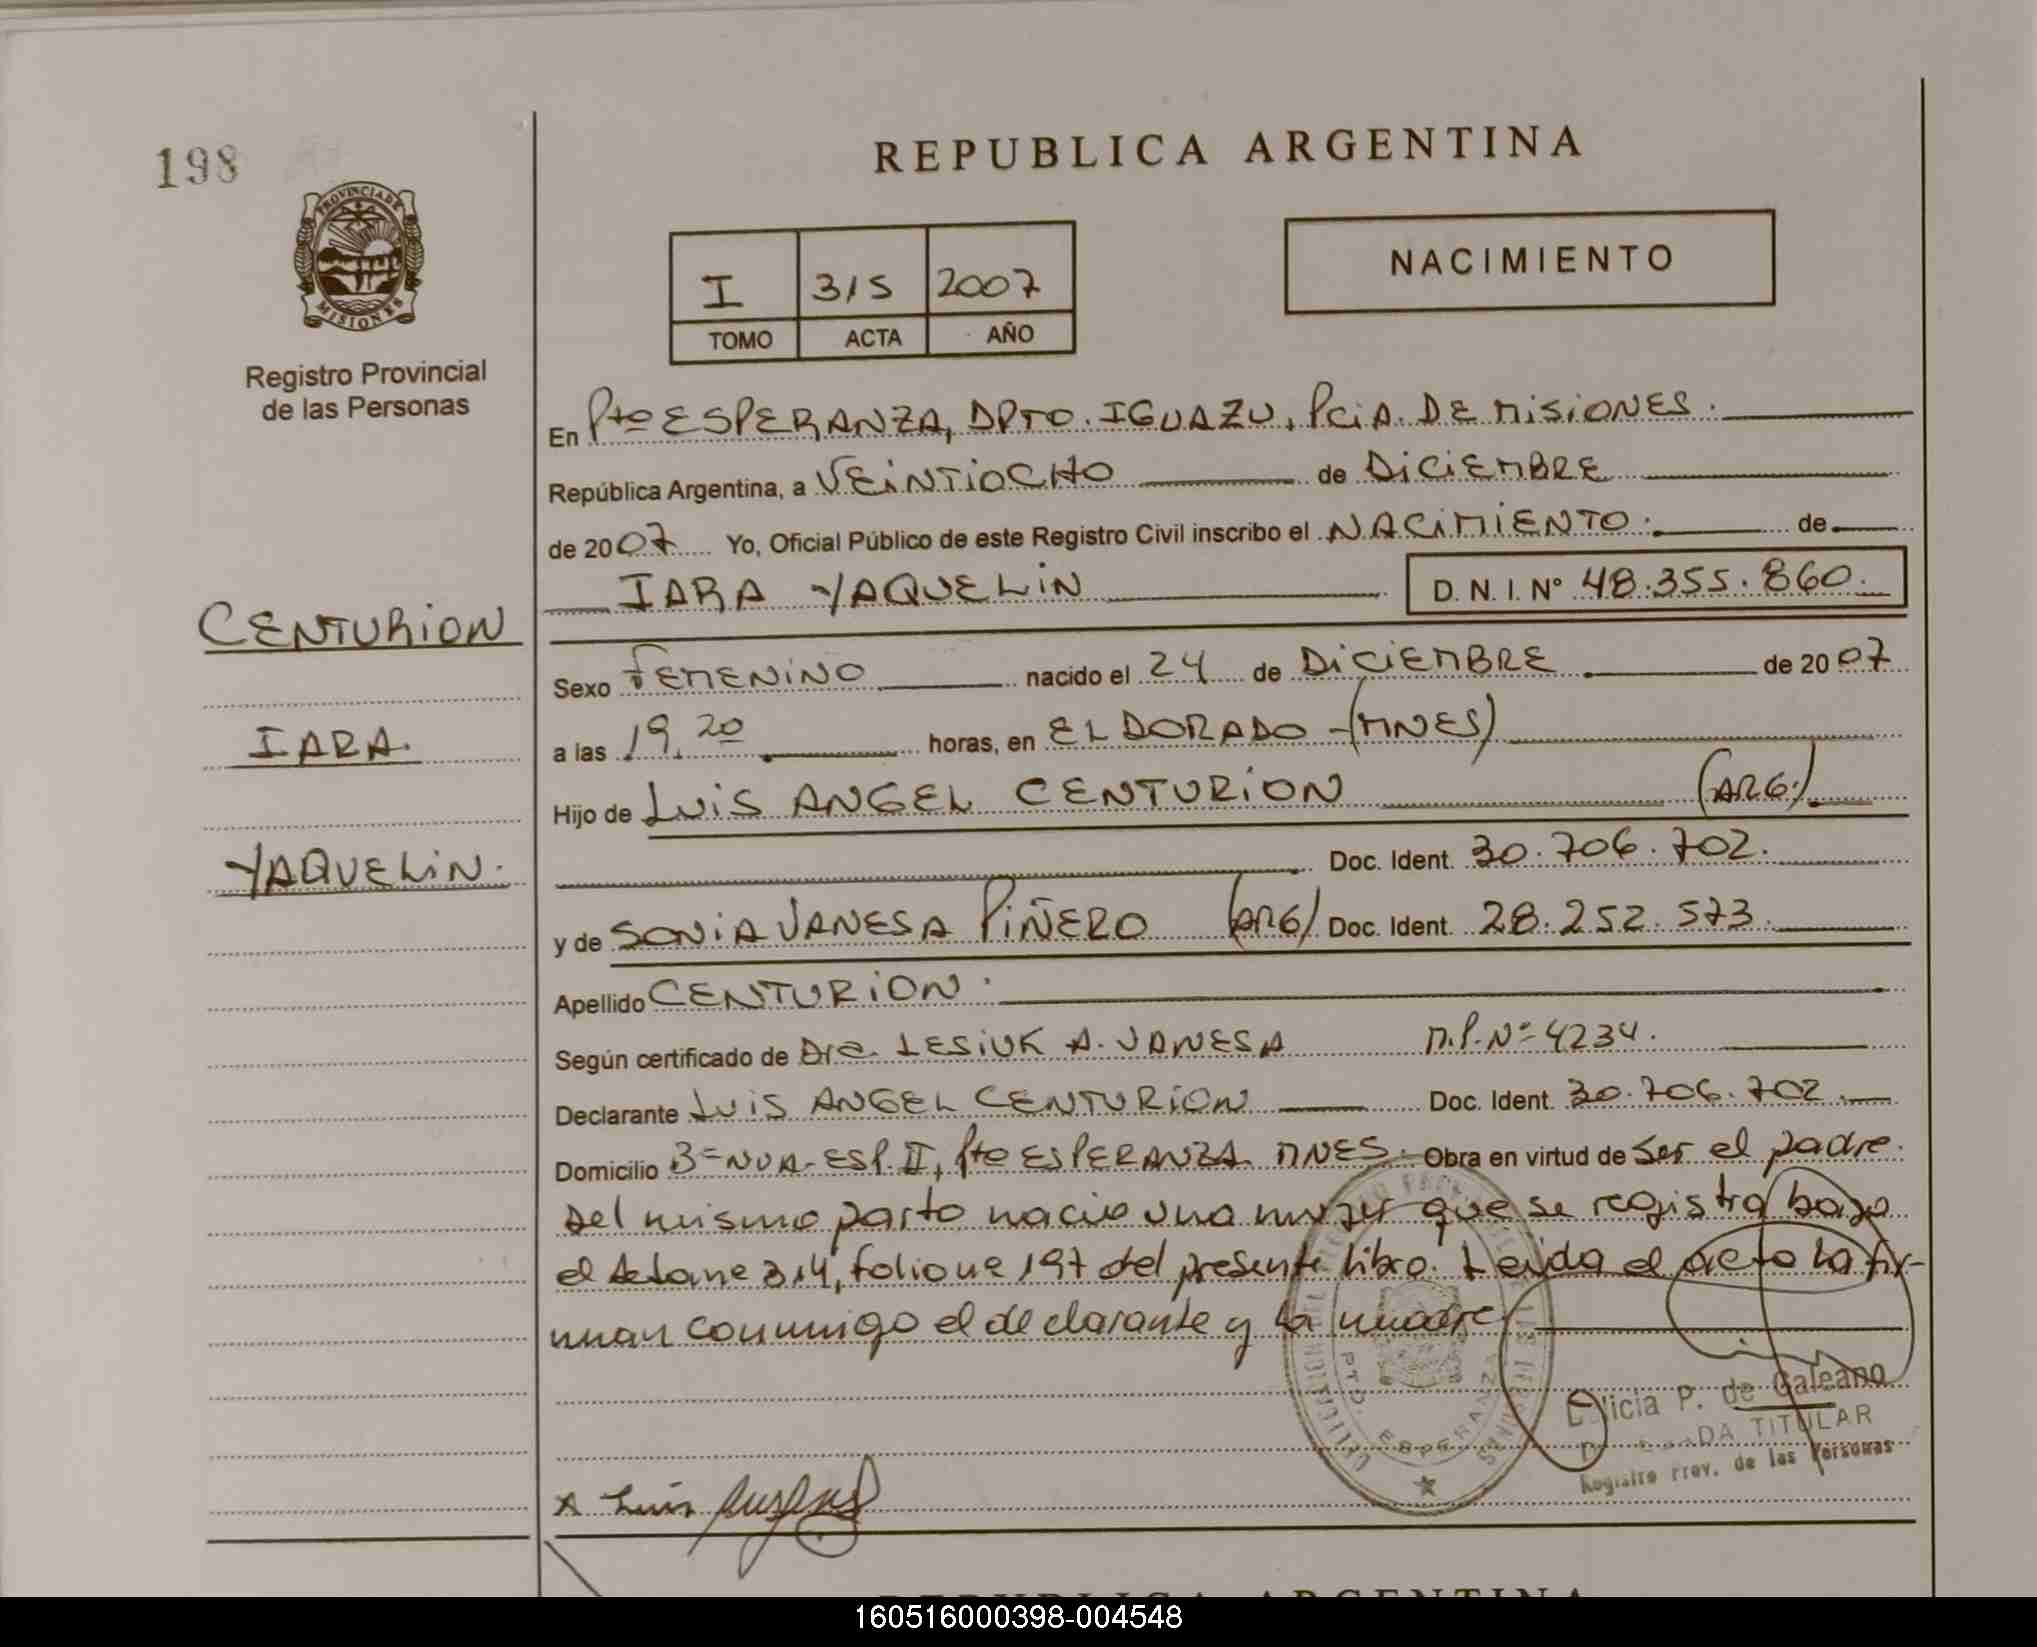 198
REPUBLICA ARGENTINA
PROVINCIA DE
MISIONES
Registro Provincial
de las Personas
I 315 2007
TOMO ACTA AÑO
NACIMIENTO
En Pto ESPERANZA, DPTO. IGUAZU, PCIA. DE MISIONES.
República Argentina, a VEINTIOCHO de DICIEMBRE
de 2007 Yo, Oficial Público de este Registro Civil inscribo el NACIMIENTO. de
IARA YAQUELIN D. N. I. Nº 48.355.860.
CENTURION
IARA.
YAQUELIN.
Sexo FEMENINO nacido el 24 de DICIEMBRE de 2007
a las 19.20 horas, en ELDORADO -(MNES)
Hijo de LUIS ANGEL CENTURION (ARG.)
Doc. Ident. 30.706.702.
y de SONIA VANESA PIÑERO (ARG) Doc. Ident. 28.252.573.
Apellido CENTURION.
Según certificado de Dra. LESIUK A. VANESA M.P.Nº 4234.
Declarante LUIS ANGEL CENTURION Doc. Ident. 30.706.702.
Domicilio Bº NVA-ESP. II, Pto ESPERANZA MNES. Obra en virtud de ser el padre.
Del mismo parto nacio una mujer que se registra bajo
el 314, folio 197 del presente libro. Leida el acta la fir-
man conmigo el declarante y la madre
PTO. ESPERANZA
P. de Galeano
TITULAR
Registro Prov. de las Personas
Luis
REPUBLICA ARGENTINA
160516000398-004548